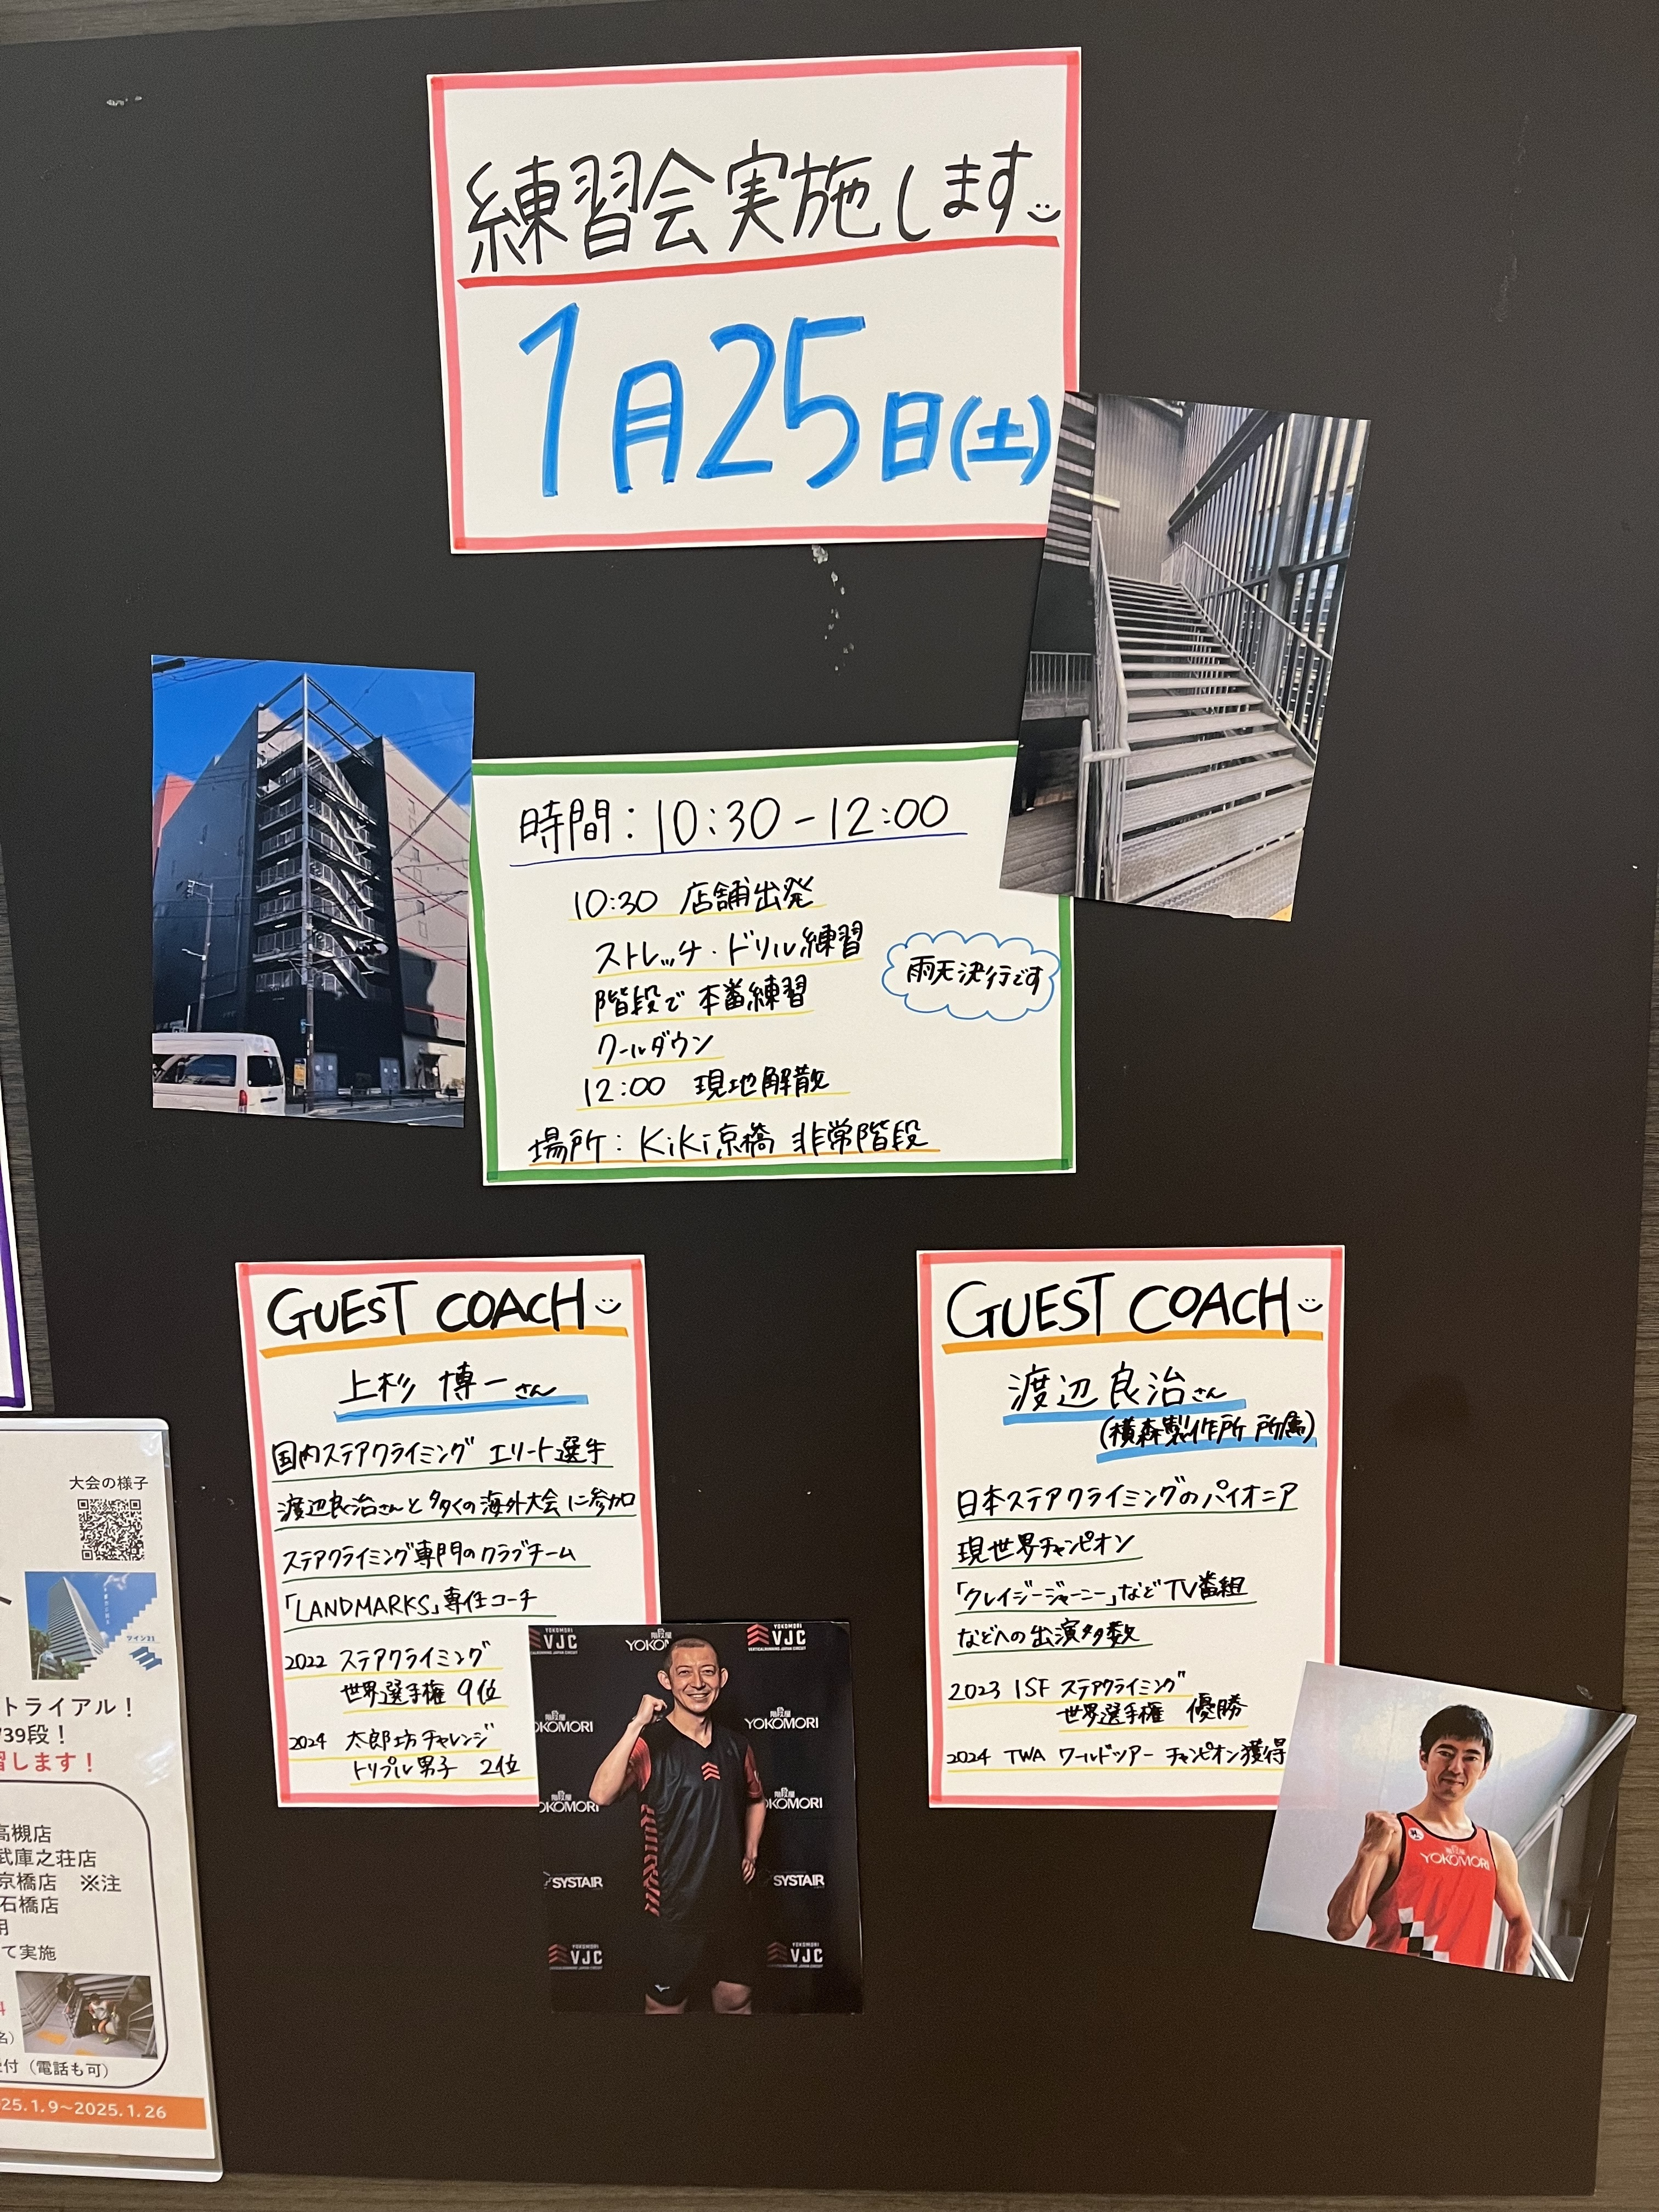 練習会実施します
1月25日(土)
時間：10:30-12:00
10:30 店舗出発
ストレッチ・ドリル練習
階段で本番練習
クールダウン
12:00 現地解散
場所：KiKi京橋 非常階段
雨天決行です
GUEST COACH
上杉 博一さん
国内ステアクライミング エリート選手
渡辺良治さんと多くの海外大会に参加
ステアクライミング専門のクラブチーム
「LANDMARKS」専任コーチ
2022 ステアクライミング
世界選手権 9位
2024 太郎坊チャレンジ
トリプル男子 2位
GUEST COACH
渡辺良治さん
(横森製作所 所属)
日本ステアクライミングのパイオニア
現世界チャンピオン
「クレイジージャーニー」などTV番組
などへの出演多数
2023 ISF ステアクライミング
世界選手権 優勝
2024 TWA ワールドツアー チャンピオン獲得
YOKOMORI
VJC
階段屋
YOKO
YOKOMORI
VJC
VERTICALRUNNING JAPAN CIRCUIT
OKOMORI
階段屋
YOKOMORI
OKOMORI
階段屋
YOKOMORI
SYSTAIR
SYSTAIR
YOKOMORI
VJC
YOKOMORI
VJC
階段屋
YOKOMORI
大会の様子
ツイン21
トライアル！
739段！
習します！
高槻店
武庫之荘店
京橋店 ※注
石橋店
用
て実施
名）
付（電話も可）
25.1.9～2025.1.26